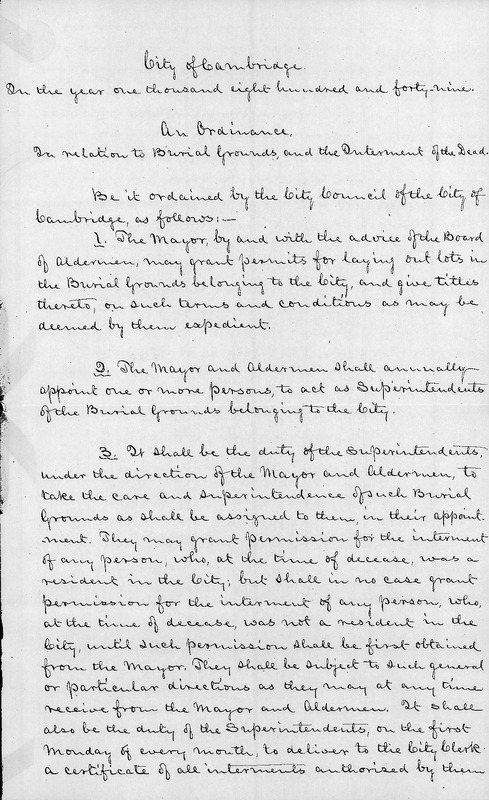 City of Cambridge.
In the year one thousand eight hundred and forty-nine.
An Ordinance,
In relation to Burial Grounds, and the Interment of the Dead.
Be it ordained by the City Council of the City of
Cambridge, as follows:—
1. The Mayor, by and with the advice of the Board
of Aldermen, may grant permits for laying out lots in
the Burial Grounds belonging to the City, and give titles
thereto, on such terms and conditions as may be
deemed by them expedient.
2. The Mayor and Aldermen shall annually
appoint one or more persons, to act as Superintendents
of the Burial Grounds belonging to the City.
3. It shall be the duty of the Superintendents,
under the direction of the Mayor and Aldermen, to
take the care and superintendence of such Burial
Grounds as shall be assigned to them, in their appoint-
ment. They may grant permission for the interment
of any person, who, at the time of decease, was a
resident in the City; but shall in no case grant
permission for the interment of any person, who,
at the time of decease, was not a resident in the
City, until such permission shall be first obtained
from the Mayor. They shall be subject to such general
or particular directions as they may at any time
receive from the Mayor and Aldermen. It shall
also be the duty of the Superintendents, on the first
Monday of every month, to deliver to the City Clerk
a certificate of all interments authorised by them